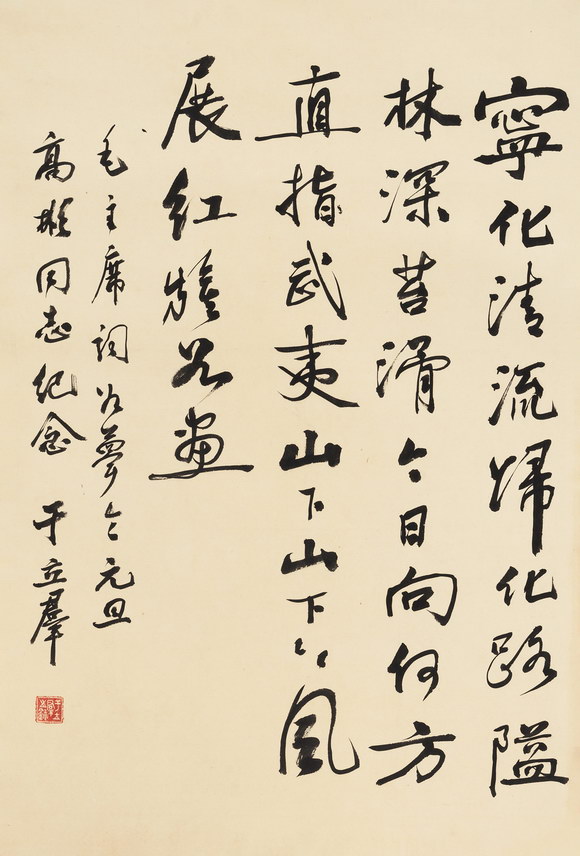 寧化清流歸化路隘
林深苔滑今日向何方
直指武夷山下山下〻〻風
展紅旗如畫
毛主席詞如夢令元旦
高同志紀念 于立羣